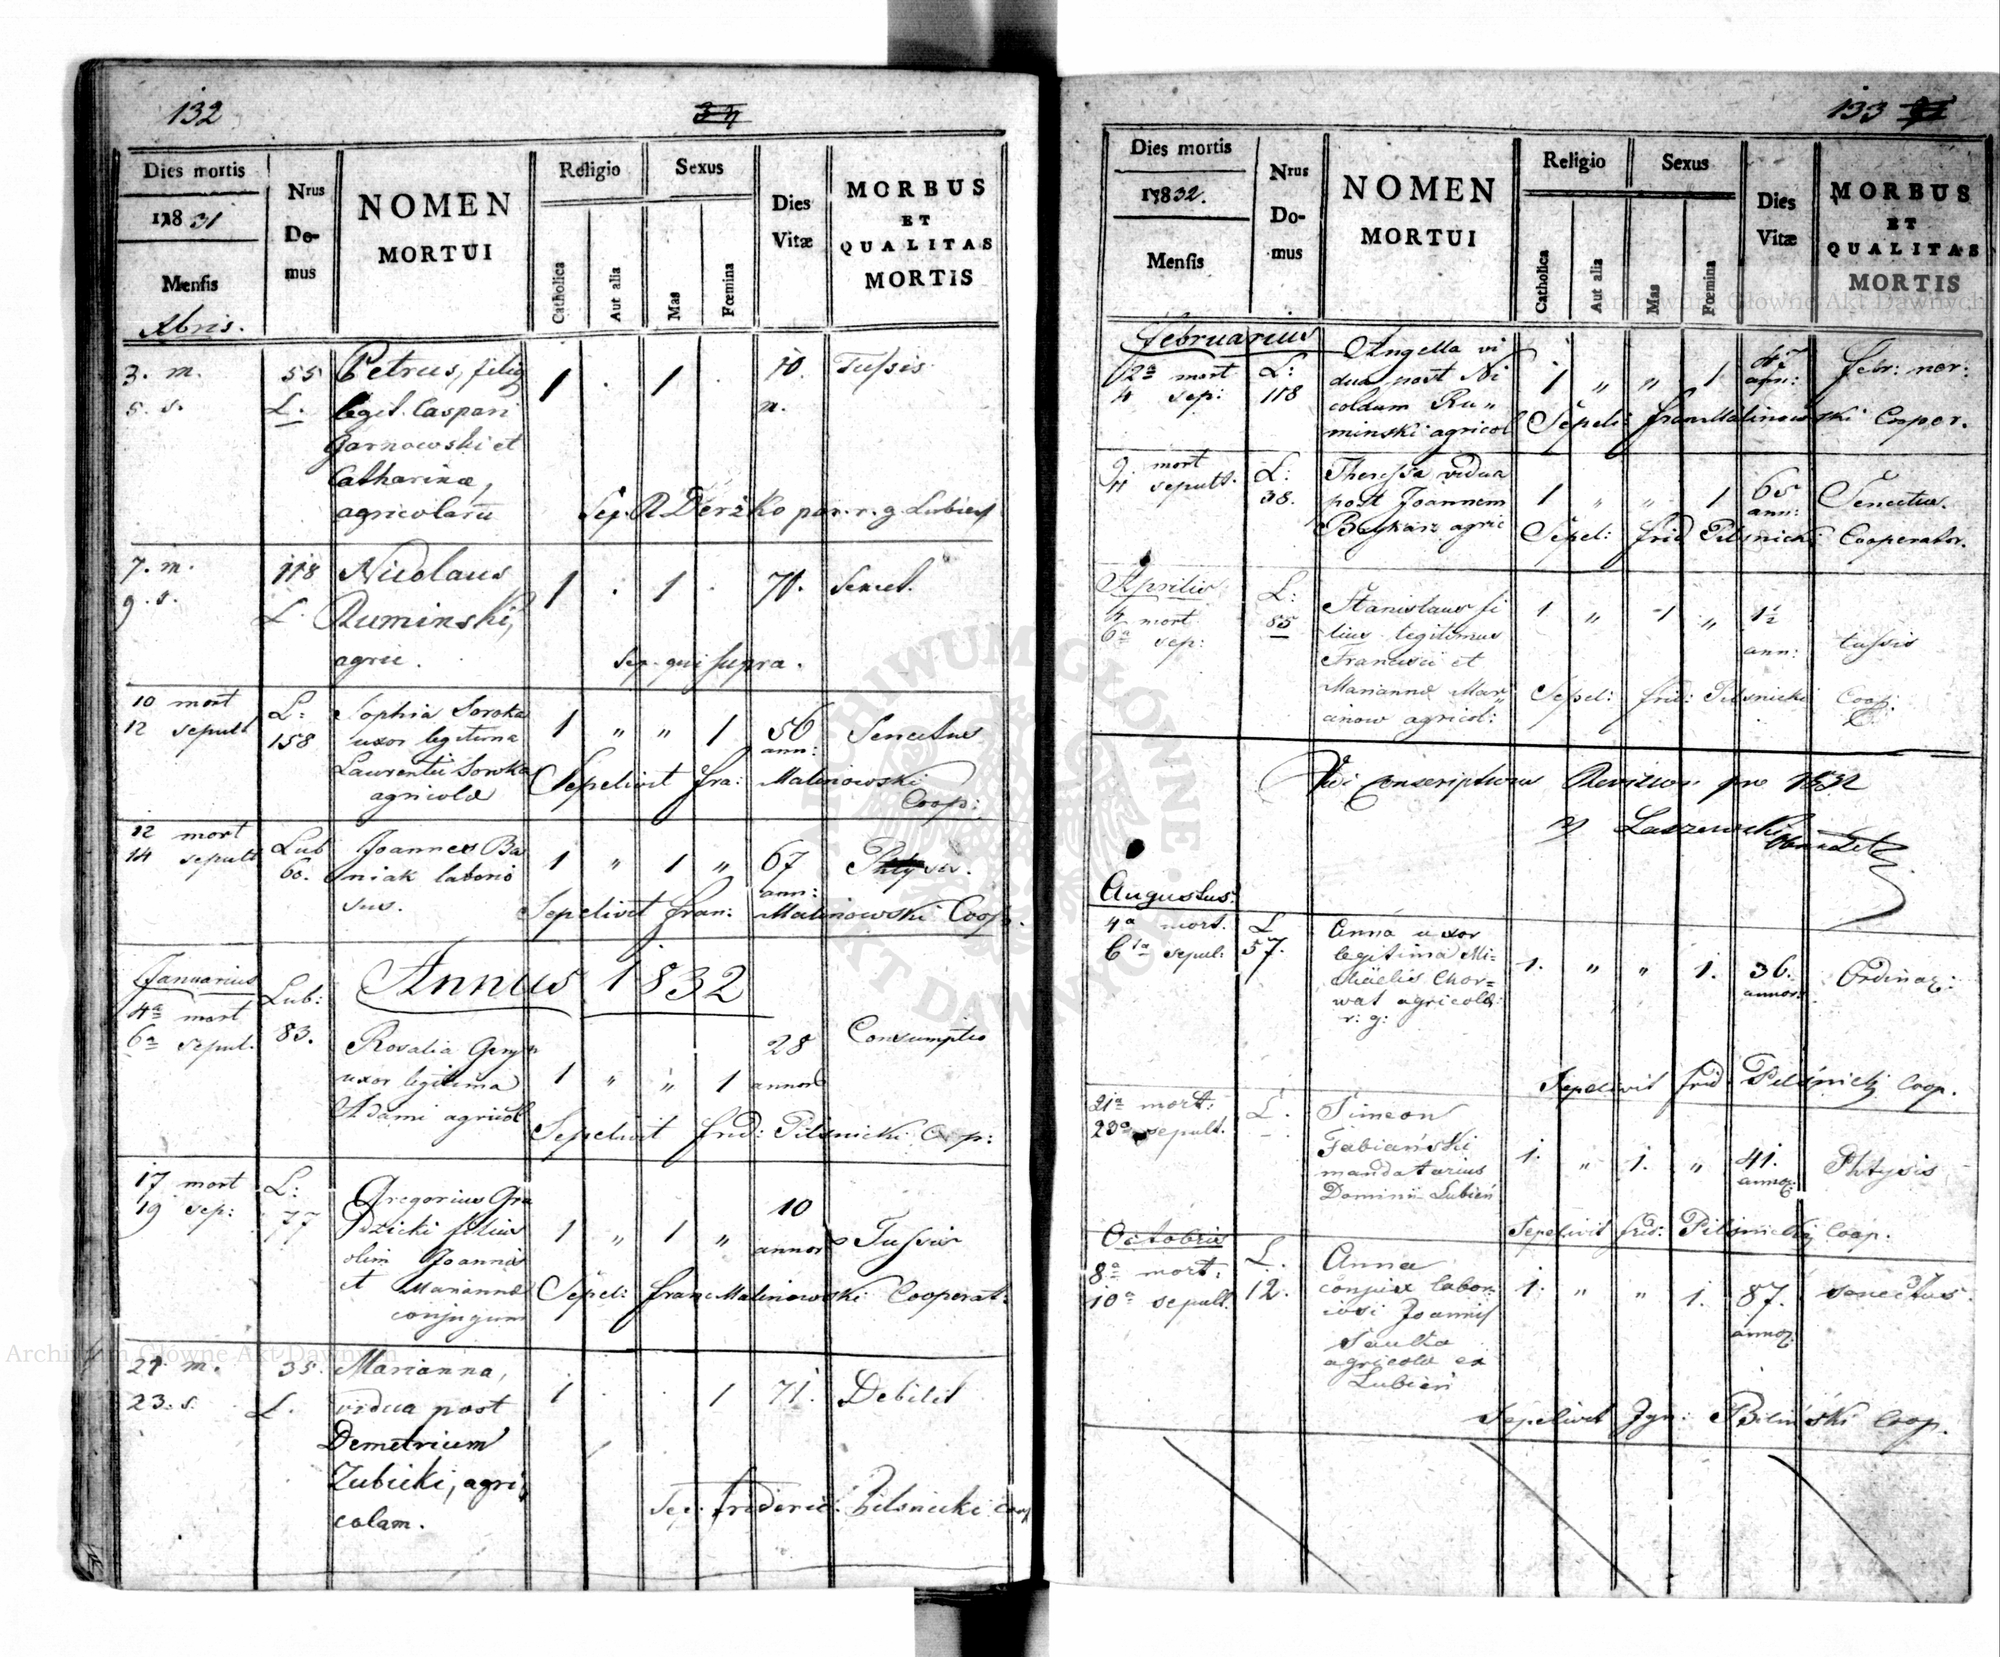 132
34
Dies mortis
1831
Mensis
Xbris.
Nrus Domus
NOMEN
MORTUI
Religio
Catholica
Aut alia
Sexus
Mas
Fœmina
Dies Vitæ
MORBUS
ET
QUALITAS
MORTIS
3. m. 55 Petrus, filig 1 . 1 . 10. Tussis
5. s. L. legit. Caspari m.
Garnowski et
Catharinæ,
agricolarū Sep. R Derżko par. r. g. Lubień
7. m. 118 Nicolaus 1 . 1 . 71. Senect.
9. s. L. Ruminski,
agric. Sep. qui supra.
10 mort L: Sophia Soroka 1 " " 1 56 Senectus
12 sepult 158 uxor legitima ann:
Laurentii Soroka Sepelivit fra: Malinowski
agricolæ Coop:
12 mort Lub Joannes Ba 1 " 1 " 67
14 sepult 60. niak laborio ann:
sus. Sepelivit fran: Malinowski Coop.
Januarius Annus 1832
4a mort Lub: 28 Consumptio
6a sepul. 83. Rosalia
uxor legitima 1 " " 1 annor
Adami agricol Sepelivit frid: Pilsnicki
17 mort L: Gregorius Gra 10
19 sep: 77 dzicki filius 1 " 1 " annor Tussis
olim Joannis
et Mariannæ Sepel: franc Malinowski Cooperat:
conjugum
21. m. 35. Marianna, 1 . . 1 71. Debilit
23. s. L. vidua post
Demetrium
Zubicki, agri
colam. Sep. frideric. Pilsnicki coop
133
Dies mortis
1832.
Mensis
Nrus Domus
NOMEN
MORTUI
Religio
Catholica
Aut alia
Sexus
Mas
Fœmina
Dies Vitæ
MORBUS
ET
QUALITAS
MORTIS
Februarius Angella vi 47
2a mort L: dua post Ni 1 " " 1 ann: febr: ner:
4 sep: 118 coldum Ru"
minski agricol Sepeli: fran Malinowski Cooper.
9. mort L: Theressa vidua
11 sepult. 38. post Joannem 1 " " 1 65 Senectus.
agric ann:
Sepel: frid Pilsnicki Cooperator.
Aprilis L: Stanislaus fi 1 " 1 " 1½
4 mort 85 lius legitimus
6a sep: Francisci et ann: tussis
Mariannæ Mar" Sepel: frid: Pilsnicki Coop:
cinow agricol:
Vidi conscripturus Revisor pro 1832
Laszewski
Augustus:
4a mort. L Anna uxor
6ta sepul: 57. legitima Mi= 1. " " 1. 36. Ordinar:
chaelis Chor= annor:
wat agricolæ
r: g:
Sepelivit frid: Pilsnicki Coop.
21a mort: L. Simeon
23a sepult. Fabiański 1. " 1. " 41. Phtysis
mandatarius annor:
Dominii Lubień
Sepelivit frid: Pilsnicki Coop.
Octobris
8a mort. L. Anna
10a sepult. 12. conjux labor 1. " " 1. 87. senectus.
iosi Joannis annor:
Saulka
agricolæ ex
Lubień
Sepelivit Ign: Biliński Coop.
Archiwum Główne Akt Dawnych
Archiwum Główne Akt Dawnych
ARCHIWUM GŁÓWNE AKT DAWNYCH